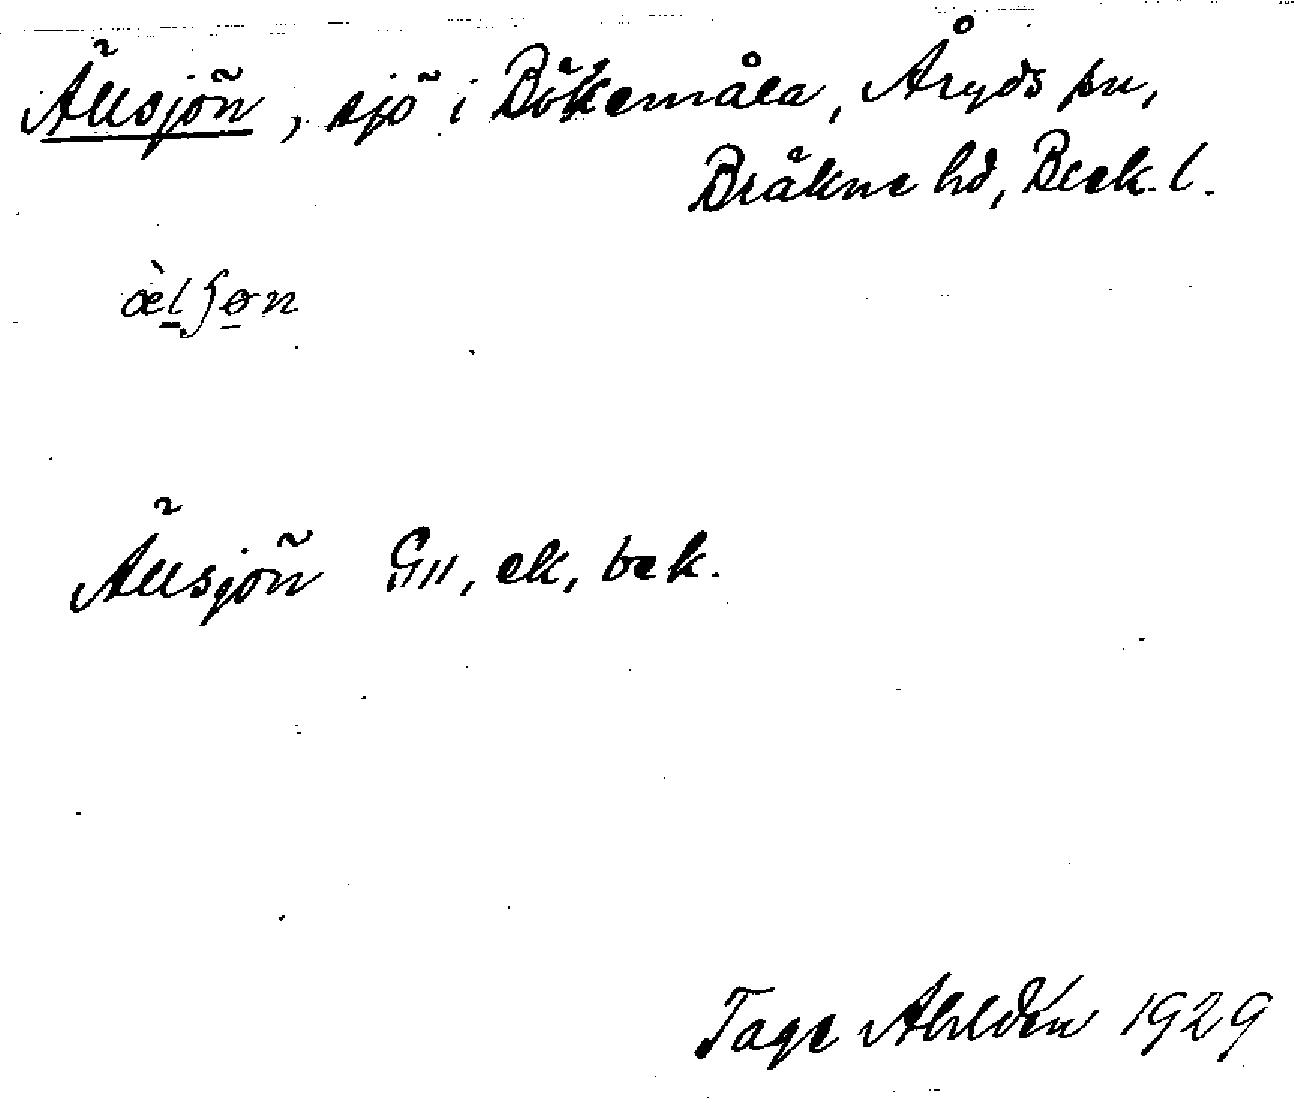 Ällsjön, sjö i Bökemåla, Åryds sn,
Bräkne hd, Blek. l.
æ̀lʃøn
Ällsjön GII, ek, bek.
Tage Ahldén 1929